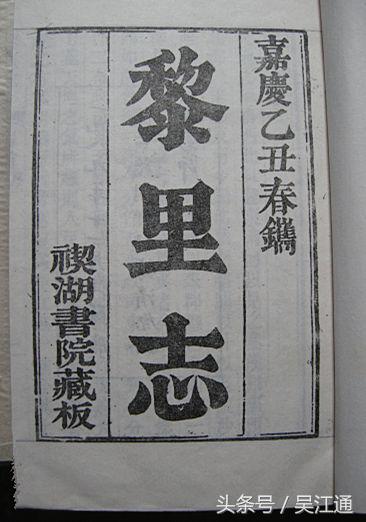 嘉慶乙丑春鐫
黎里志
禊湖書院藏板
头条号／吴江通